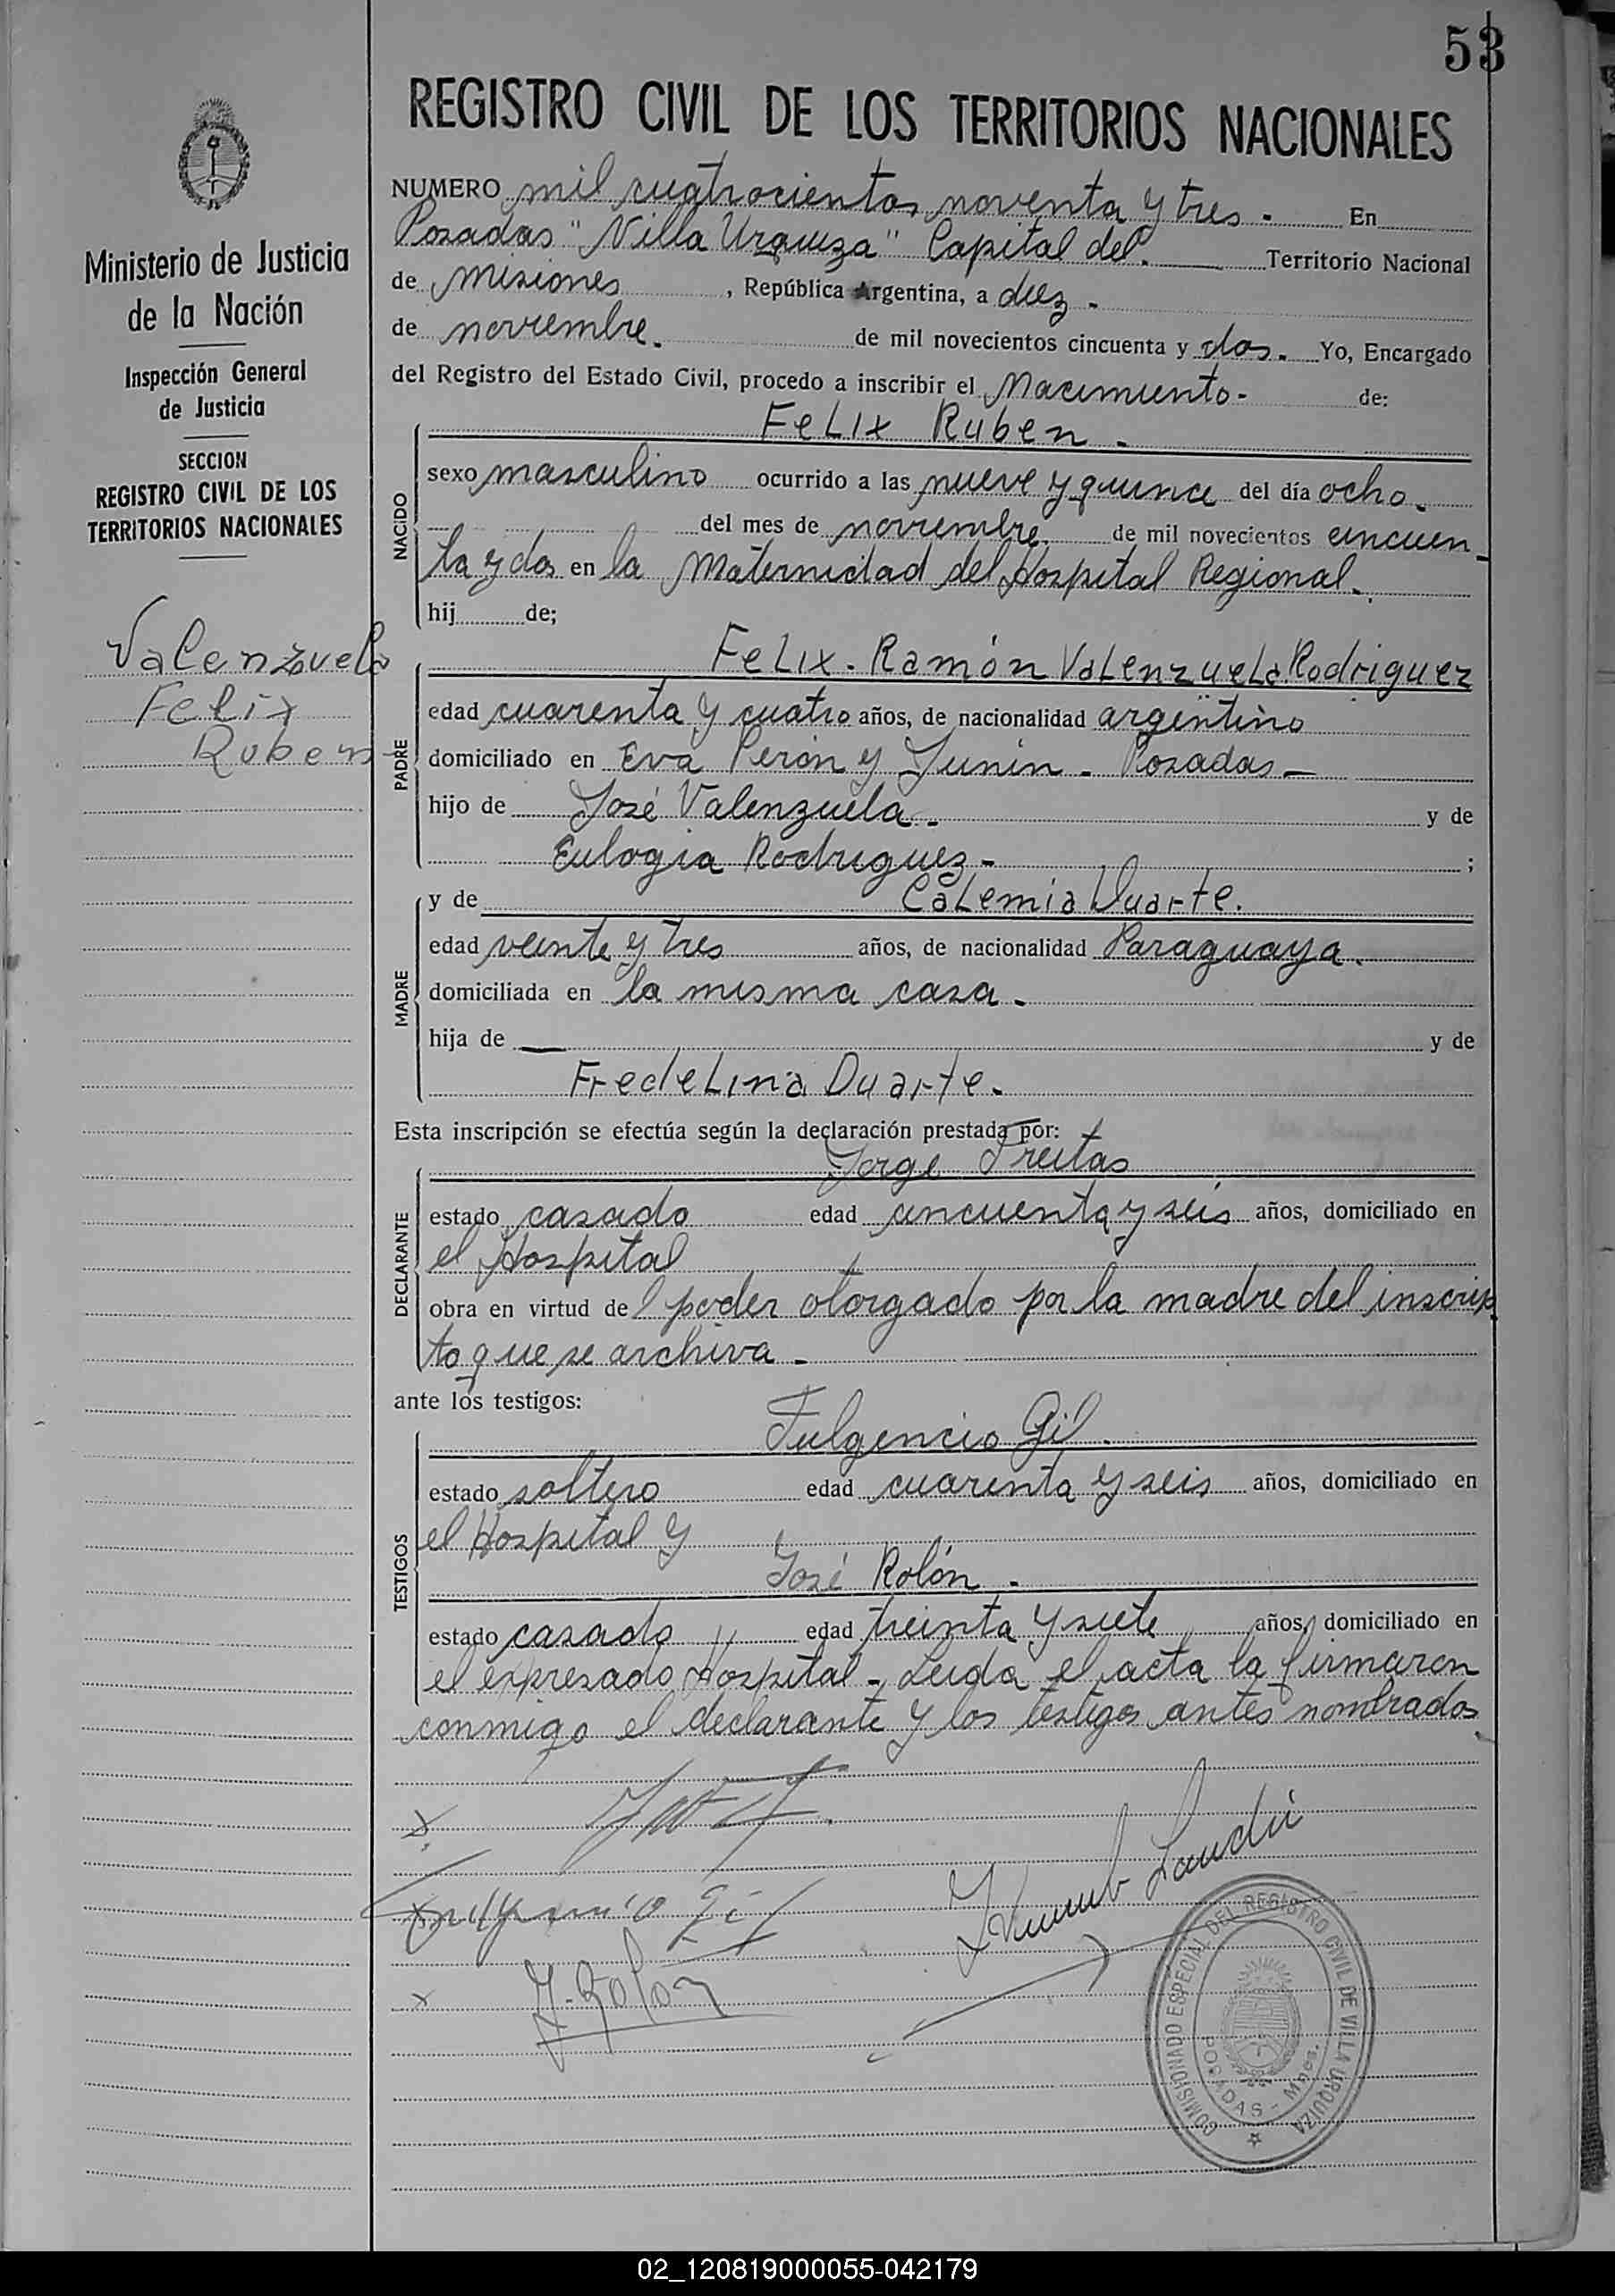 53
REGISTRO CIVIL DE LOS TERRITORIOS NACIONALES
Ministerio de Justicia
de la Nación
Inspección General
de Justicia
SECCION
REGISTRO CIVIL DE LOS
TERRITORIOS NACIONALES
Valenzuela
Felix
Ruben
NUMERO mil cuatrocientos noventa y tres - En
Posadas "Villa Urquiza" Capital del. Territorio Nacional
de Misiones , República Argentina, a diez -
de noviembre. de mil novecientos cincuenta y dos. Yo, Encargado
del Registro del Estado Civil, procedo a inscribir el Nacimiento - de:
NACIDO
FeLix Ruben -
sexo masculino ocurrido a las nueve y quince del día ocho.
del mes de noviembre. de mil novecientos cincuen-
ta y dos en la Maternidad del Hospital Regional -.
hij de;
PADRE
FeLix - Ramón VaLenzueLa Rodriguez
edad cuarenta y cuatro años, de nacionalidad argentino
domiciliado en Eva Perón y Junín - Posadas -
hijo de José Valenzuela - y de
Eulogia Rodriguez - ;
MADRE
y de CaLemia Duarte.
edad veinte y tres años, de nacionalidad Paraguaya.
domiciliada en la misma casa -
hija de — y de
FredeLina Duarte.
Esta inscripción se efectúa según la declaración prestada por:
DECLARANTE
Jorge Freitas
estado casado edad cincuenta y seis años, domiciliado en
el Hospital
obra en virtud del poder otorgado por la madre del inscrip
to que se archiva -
ante los testigos:
TESTIGOS
Fulgencio Gil.
estado soltero edad cuarenta y seis años, domiciliado en
el Hospital y
José Rolón -
estado casado edad treinta y siete años, domiciliado en
el expresado Hospital - Leida el acta la firmaron
conmigo el declarante y los testigos antes nombrados
x
x Fulgencio Gil
x J. Rolon
COMISIONADO ESPECIAL DEL REGISTRO CIVIL DE VILLA URQUIZA
POSADAS - Mnes.
02_120819000055-042179